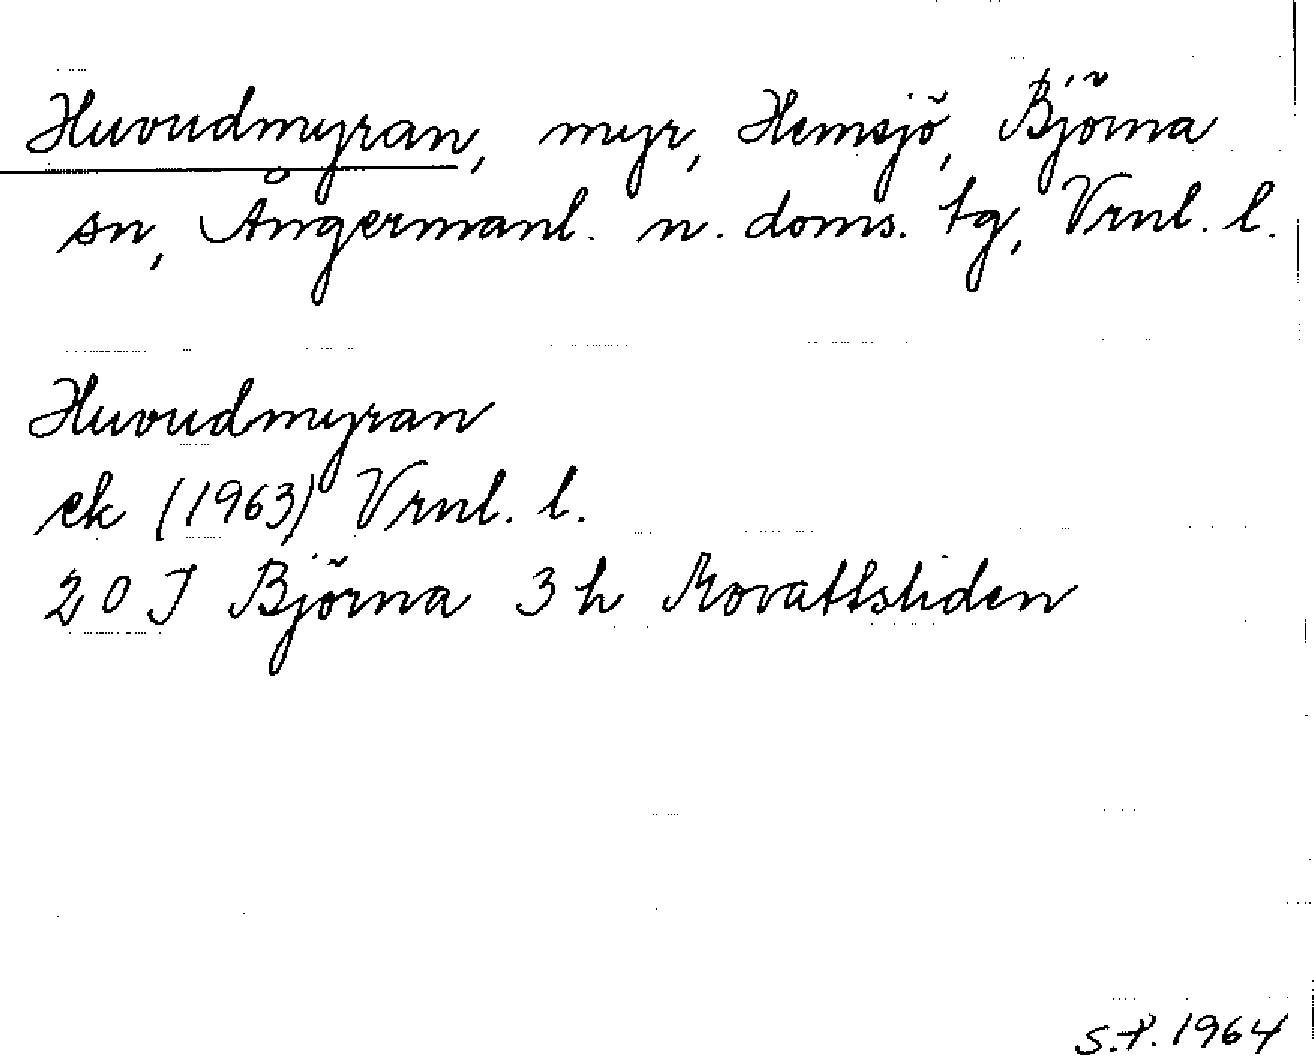 Huvudmyran, myr, Hemsjö, Björna
sn, Ångermanl. n. doms. tg, Vrnl. l.
Huvudmyran
ek (1963) Vrnl. l.
20 J Björna 3 h Movattsliden
S.P. 1964